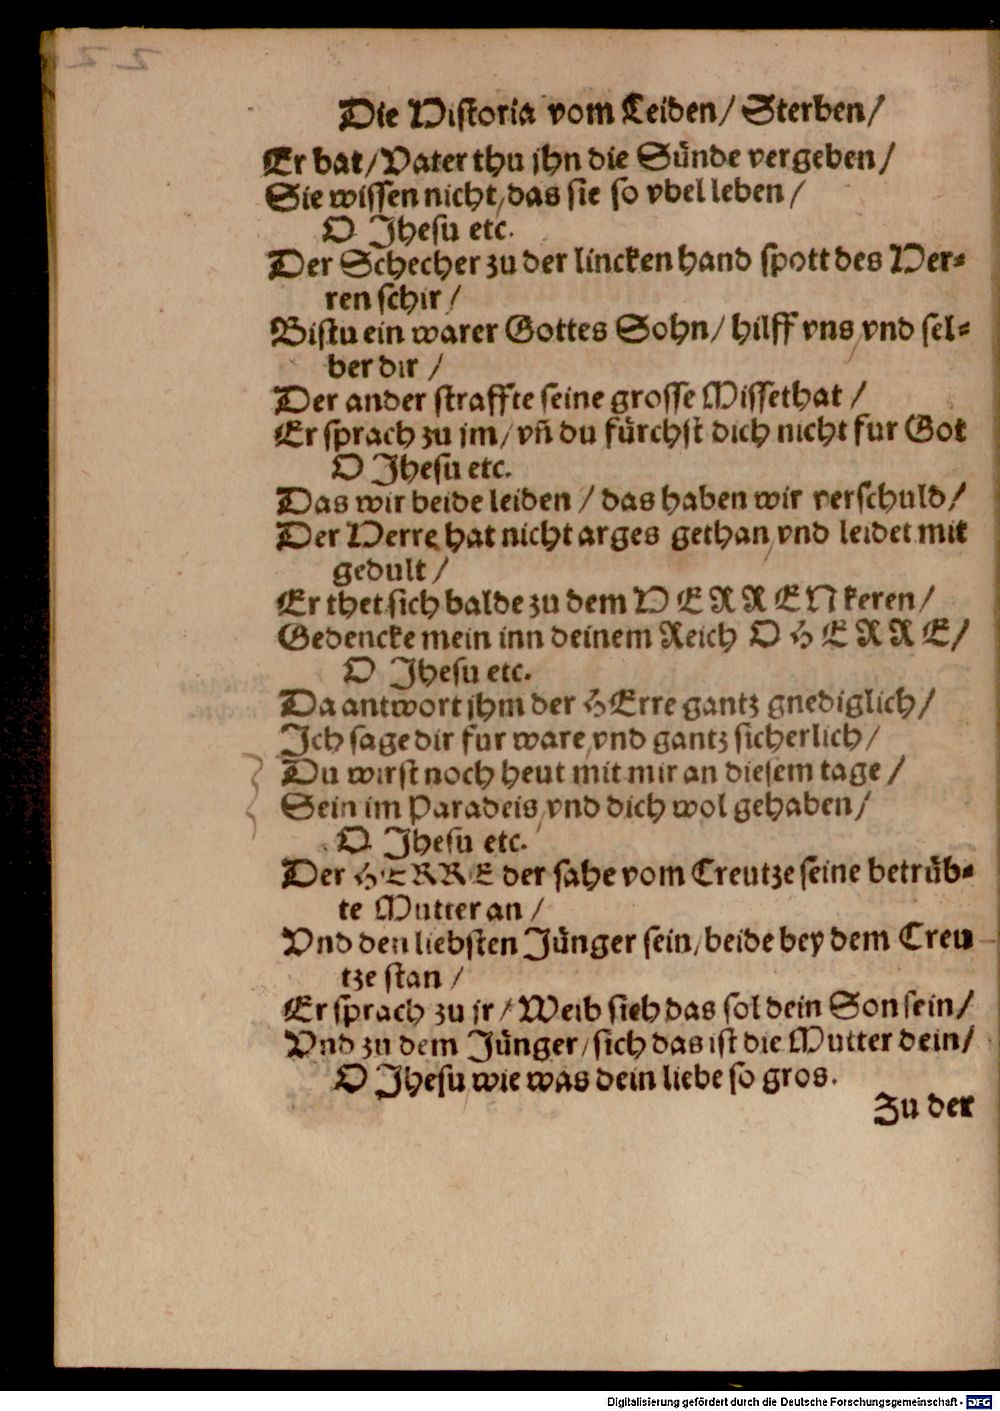 22
Die Historia vom Leiden/ Sterben/
Er bat/Vater thu jhn die Sünde vergeben/
Sie wissen nicht/das sie so vbel leben/
O Jhesu etc.
Der Schecher zu der lincken hand spott des Her-
ren schir/
Bistu ein warer Gottes Sohn/ hilff vns/vnd sel-
ber dir/
Der ander straffte seine grosse Missethat/
Er sprach zu jm/vñ du fürchst dich nicht fur Got
O Jhesu etc.
Das wir beide leiden/das haben wir verschuld/
Der Herre hat nicht arges gethan/vnd leidet mit
gedult/
Er thet sich balde zu dem HERREN keren/
Gedencke mein inn deinem Reich O HERRE/
O Jhesu etc.
Da antwort jhm der HErre gantz gnediglich/
Ich sage dir fur ware/vnd gantz sicherlich/
Du wirst noch heut mit mir an diesem tage/
Sein im Paradeis/vnd dich wol gehaben/
O Jhesu etc.
Der HERRE der sahe vom Creutze seine betrüb-
te Mutter an/
Vnd den liebsten Jünger sein/beide bey dem Creu
tze stan/
Er sprach zu jr/Weib sieh das sol dein Son sein/
Vnd zu dem Jünger/sich das ist die Mutter dein/
O Jhesu wie was dein liebe so gros.
Zu der
Digitalisierung gefördert durch die Deutsche Forschungsgemeinschaft - DFG